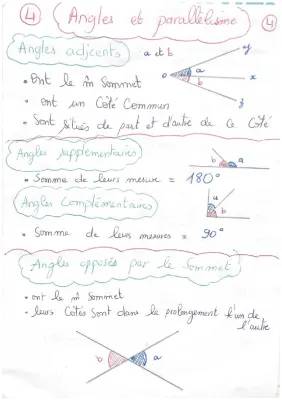 4 Angles et parallélisme 4
Angles adjcents a et b
• Ont le m̂ Sommet
• ont un Côté Commun
• Sont Situés de part et d'autre de ce Côté
o a b y x z
Angles supplémentaires
b a
• Somme de leurs mesure = 180°
Angles Complémentaires
a b
• Somme de leurs mesures = 90°
Angles opposés par le Sommet
• ont le m̂ Sommet
• leurs Côtés Sont dans le prolongement l'un de
l'autre
b a